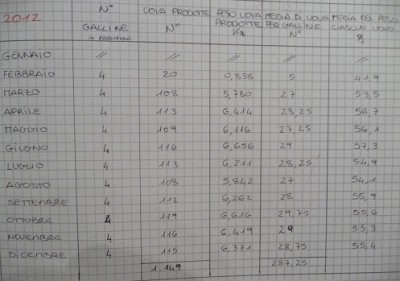 2012 N° GALLINE UOVA PRODOTTE N° PESO UOVA PRODOTTE Kg MEDIA DI UOVA PER GALLINE N° MEDIA DEL PESO CIASCUN UOVO g
GENNAIO // // // // //
FEBBRAIO 4 20 0,838 5 41,9
MARZO 4 108 5,780 27 53,5
APRILE 4 113 6,414 28,25 56,7
MAGGIO 4 109 6,116 27,25 56,1
GIUGNO 4 116 6,656 29 57,3
LUGLIO 4 113 6,211 28,25 54,9
AGOSTO 4 108 5,842 27 54,1
SETTEMBRE 4 112 6,262 28 55,9
OTTOBRE 4 119 6,616 29,75 55,6
NOVEMBRE 4 116 6,419 29 55,3
DICEMBRE 4 115 6,371 28,75 55,4
1.149 287,25